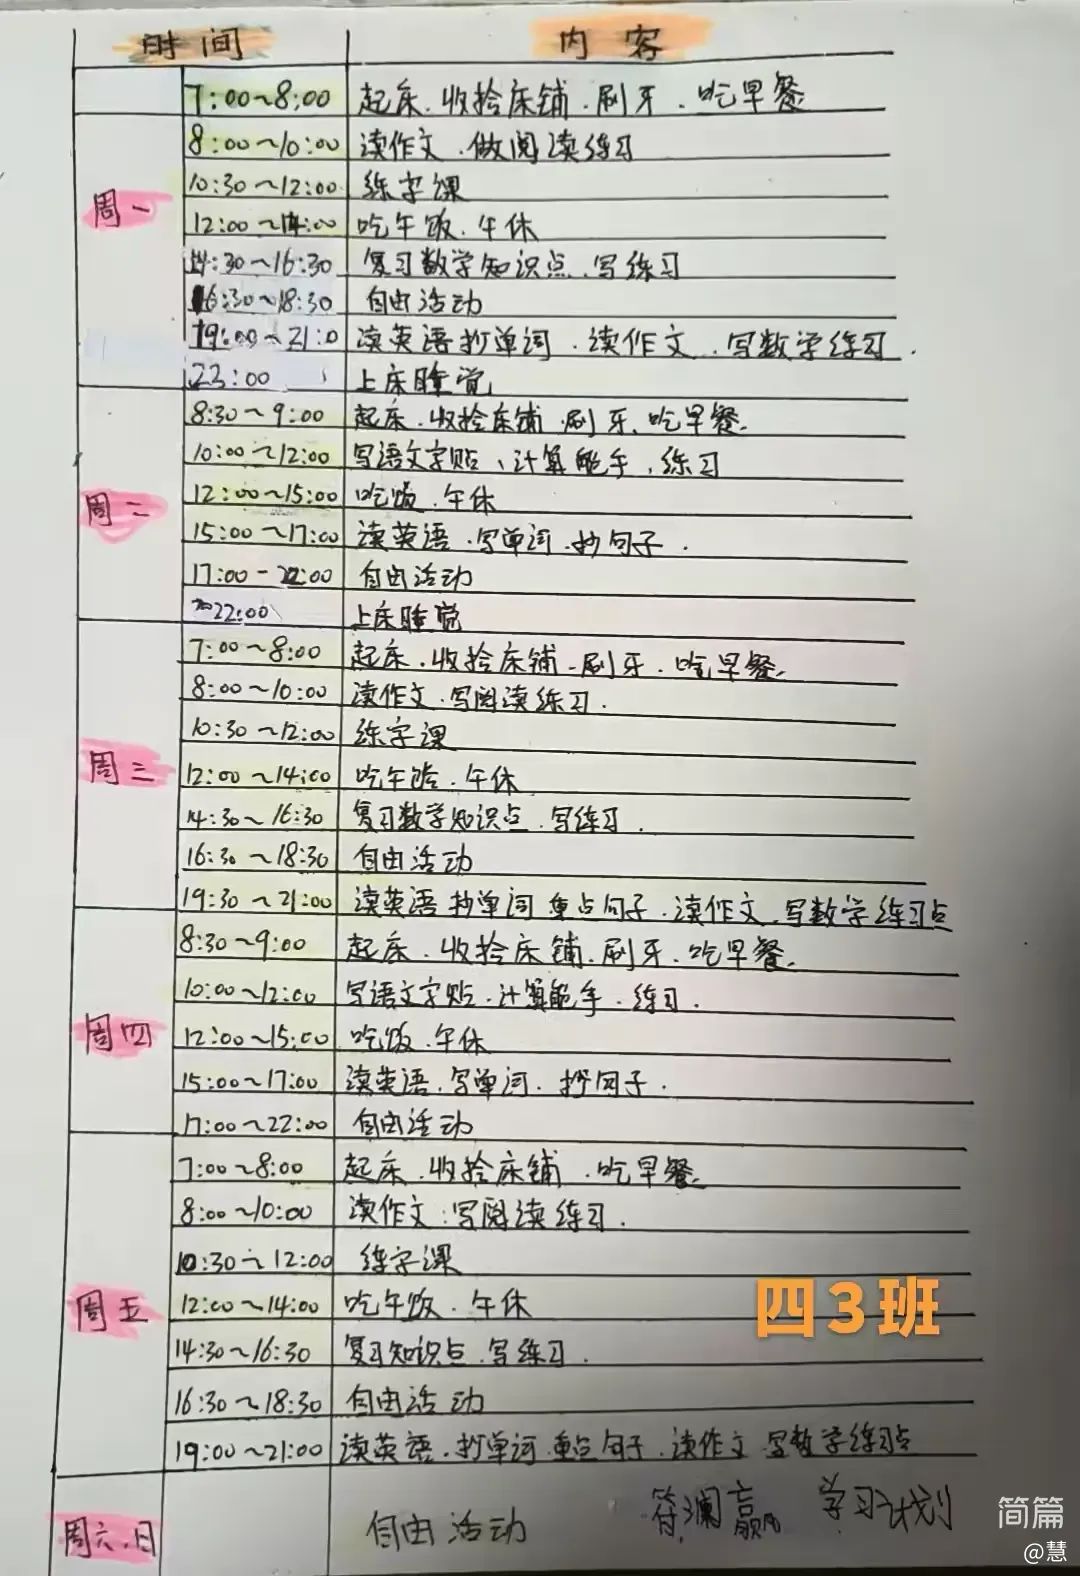 时间 内容
7:00~8:00 起床.收拾床铺.刷牙.吃早餐
8:00~10:00 读作文.做阅读练习
10:30~12:00 练字课
周一
12:00~14:00 吃午饭.午休
14:30~16:30 复习数学知识点.写练习
16:30~18:30 自由活动
19:00~21:0 读英语抄单词.读作文.写数学练习.
22:00 上床睡觉
8:30~9:00 起床.收拾床铺.刷牙、吃早餐.
10:00~12:00 写语文字贴、计算能手、练习
周二
12:00~15:00 吃饭.午休
15:00~17:00 读英语.写单词.抄句子.
17:00-22:00 自由活动
22:00 上床睡觉
7:00~8:00 起床.收拾床铺.刷牙.吃早餐.
8:00~10:00 读作文.写阅读练习.
10:30~12:00 练字课
周三
12:00~14:00 吃午饭.午休
14:30~16:30 复习数学知识点.写练习.
16:30~18:30 自由活动
19:30~21:00 读英语抄单词重点句子.读作文.写数学练习点
8:30~9:00 起床.收拾床铺.刷牙.吃早餐.
10:00~12:00 写语文字贴.计算能手.练习.
周四
12:00~15:00 吃饭.午休
15:00~17:00 读英语.写单词.抄句子.
17:00~22:00 自由活动
7:00~8:00 起床.收拾床铺.吃早餐.
8:00~10:00 读作文:写阅读练习.
10:30~12:00 练字课
周五
12:00~14:00 吃午饭.午休
四3班
14:30~16:30 复习知识点.写练习.
16:30~18:30 自由活动
19:00~21:00 读英语.抄单词.重点句子.读作文.写数学练习点
周六.日 自由活动 符澜赢 学习计划
简篇
@慧